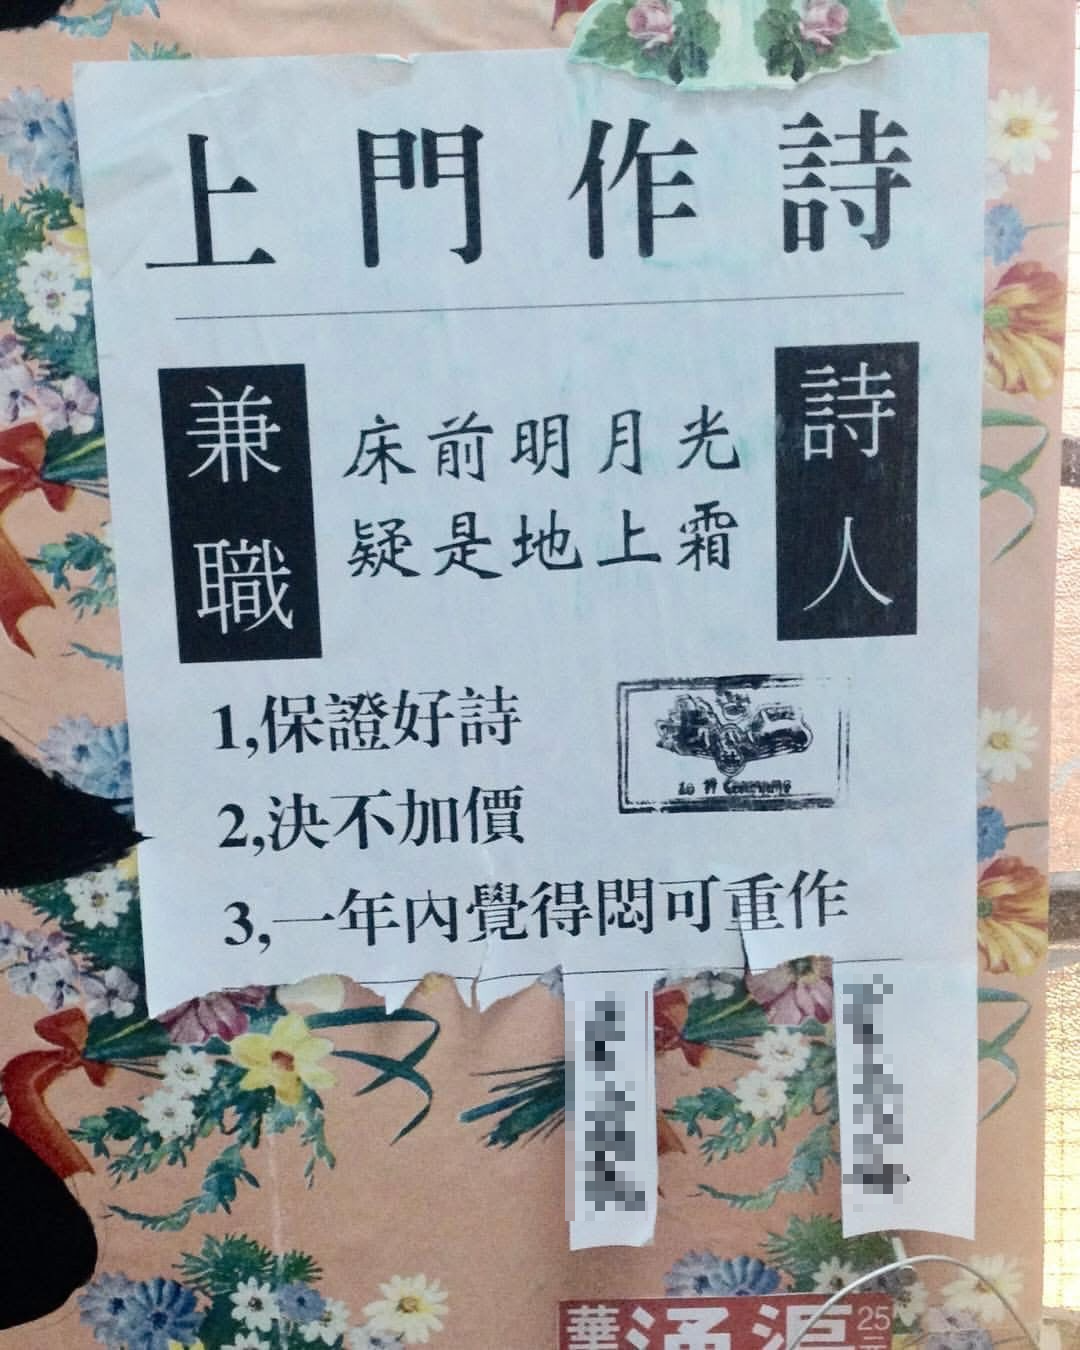 上門作詩
兼職
床前明月光
疑是地上霜
詩人
1,保證好詩
2,決不加價
3,一年內覺得悶可重作
25
元